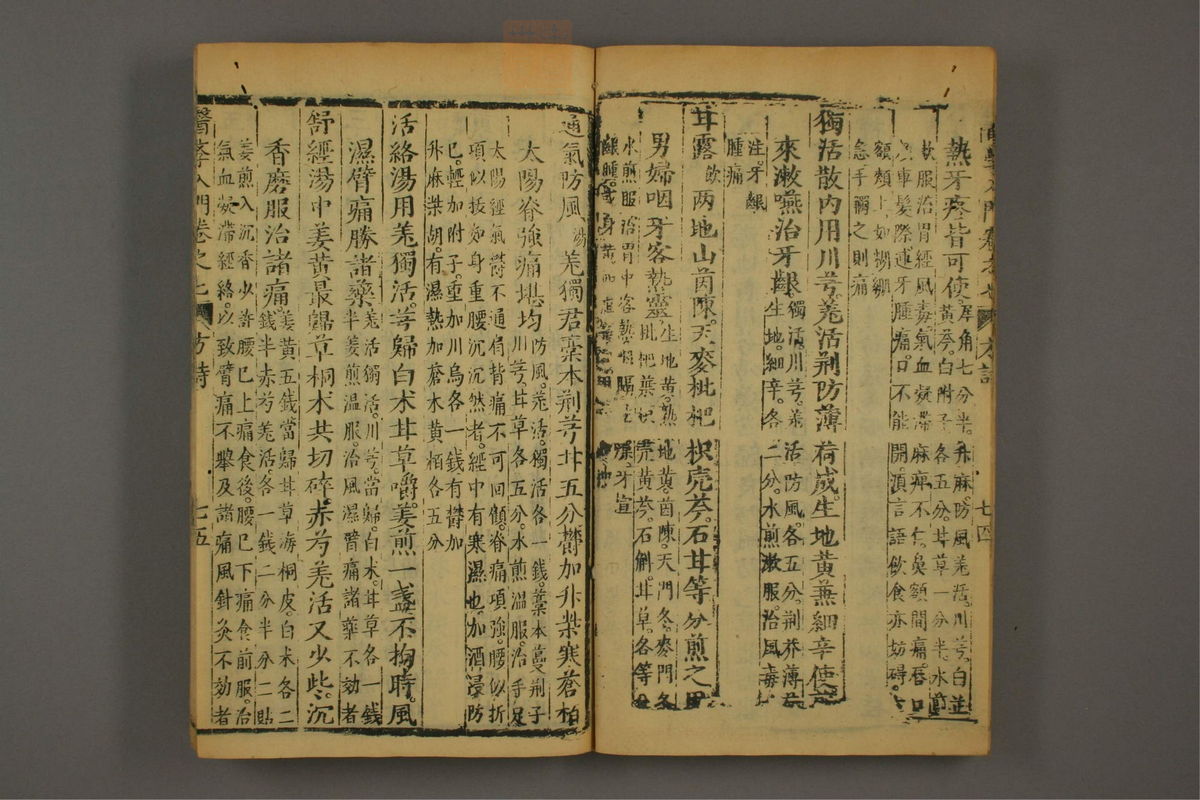 熱牙疼皆可使犀角七分半升麻防風羌活川芎白芷
黃芩白附子各五分甘草一分半水
漱服治胃經風毒氣血凝滯麻痺不仁鼻額間痛唇口
車髮際連牙腫痛口不能開湏言語飲食亦妨碍
額頰上如糊綳
急手觸之則痛
獨活散內用川芎羌活荊防薄荷咸生地黃兼細辛使
來漱嚥治牙齦獨活川芎羌活防風各五分荊芥薄荷
生地細辛各二分水煎漱服治風毒
注牙齦
腫痛
甘露飲兩地山茵陳天麥枇杷枳壳芩石甘等分煎之
男婦咽牙客熱靈生地黃熟地黃茵陳天門冬麥門冬
枇杷葉枳壳黃芩石斛甘草各等分
水煎服治胃中客熱牙宣
齦腫
七四
通氣防風湯羌獨君藁本荊芎甘五分鬱加升柴寒蒼柏
太陽脊強痛堪均防風羌活獨活各一錢藁本蔓荊子
川芎甘草各五分水煎溫服治手足
太陽經氣鬱不通肩背痛不可回顧脊痛項強腰似折
項似拔如身重腰沉沉然者經中有寒濕也加酒浸防
已輕加附子重加川烏各一錢有鬱加
升麻柴胡有濕熱加蒼朮黃栢各五分
活絡湯用羌獨活芎歸白朮甘草嚼姜煎一盞不拘時風
濕臂痛勝諸藥羌活獨活川芎當歸白朮甘草各一錢
半姜煎溫服治風濕臂痛諸藥不効者
舒經湯中姜黃最歸草桐朮共切碎赤芍羌活又少些沉
香磨服治諸痛姜黃五錢當歸甘草海桐皮白朮各二
錢半赤芍羌活各一錢二分半分二貼
姜煎入沉香少許腰已上痛食後腰已下痛食前服治
氣血凝滯經絡以致臂痛不舉及諸痛風針灸不効者
醫學入門卷之七 方詩 七五